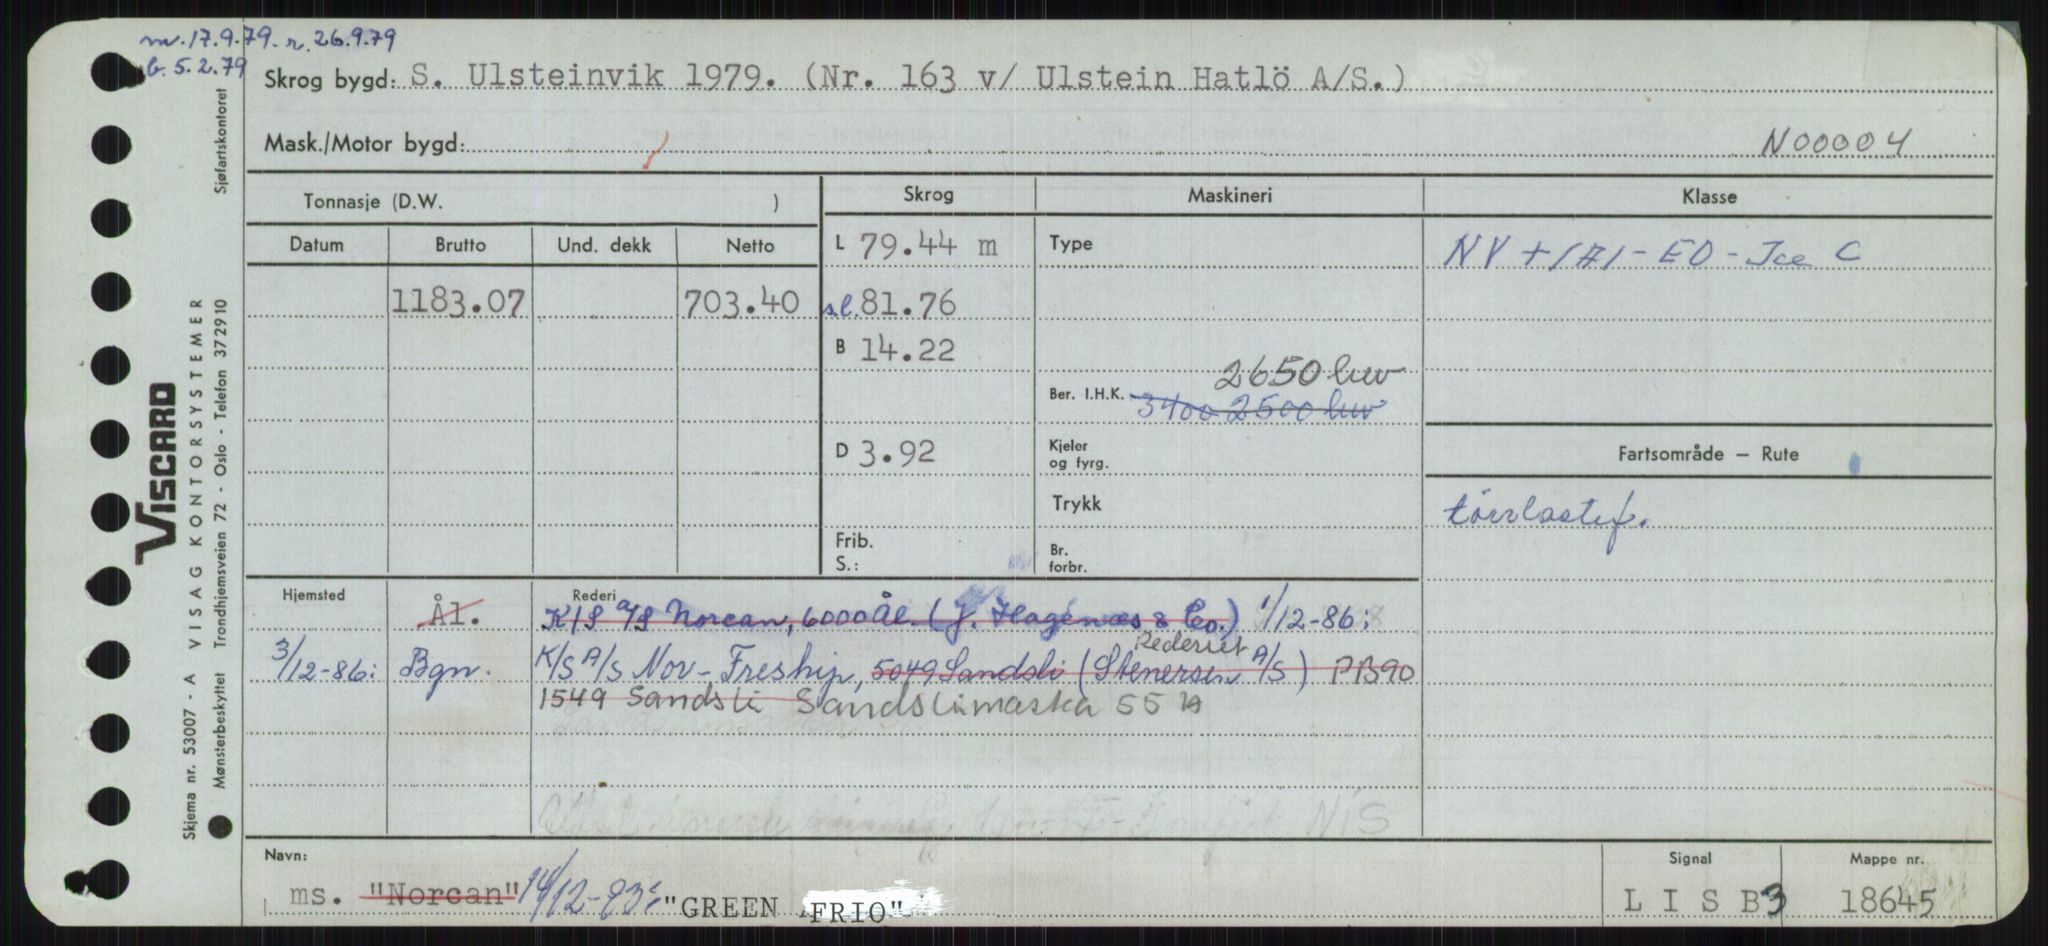 m. 17.9.79. r. 26.9.79
b. 5.2.79
Skrog bygd: S. Ulsteinvik 1979. (Nr. 163 v/ Ulstein Hatlö A/S.)
Mask./Motor bygd:
N00004
Tonnasje (D.W. )
Skrog
Maskineri
Klasse
Datum
Brutto
Und. dekk
Netto
L 79.44 m
Type
NV +1A1-EO-Ice C
1183.07
703.40
s.l. 81.76
B 14.22
2650 hkv
Ber. I.H.K. 3400 2500 hkv
D 3.92
Kjeler
og fyrg.
Fartsområde — Rute
Trykk
tørrlastef.
Frib.
S.:
Br.
forbr.
Hjemsted
Rederi
Ål.
K/S A/S Norcan, 6000 Ål. (J. Hagenæs & Co.) 1/12-86:
3/12-86: Bgn.
Rederiet
K/S A/S Nor-Freship, 5049 Sandsli (Stenersen A/S) PB90
1549 Sandsli Sandslimarka 55
NIS
Navn:
Signal
Mappe nr.
ms. "Norcan" 14/12-93: "GREEN FRIO"
L I S B 3
18645
VISCARD
VISAG KONTORSYSTEMER
Skjema nr. 53007 - A
Mønsterbeskyttet
Trondhjemsveien 72 - Oslo - Telefon 372910
Sjøfartskontoret